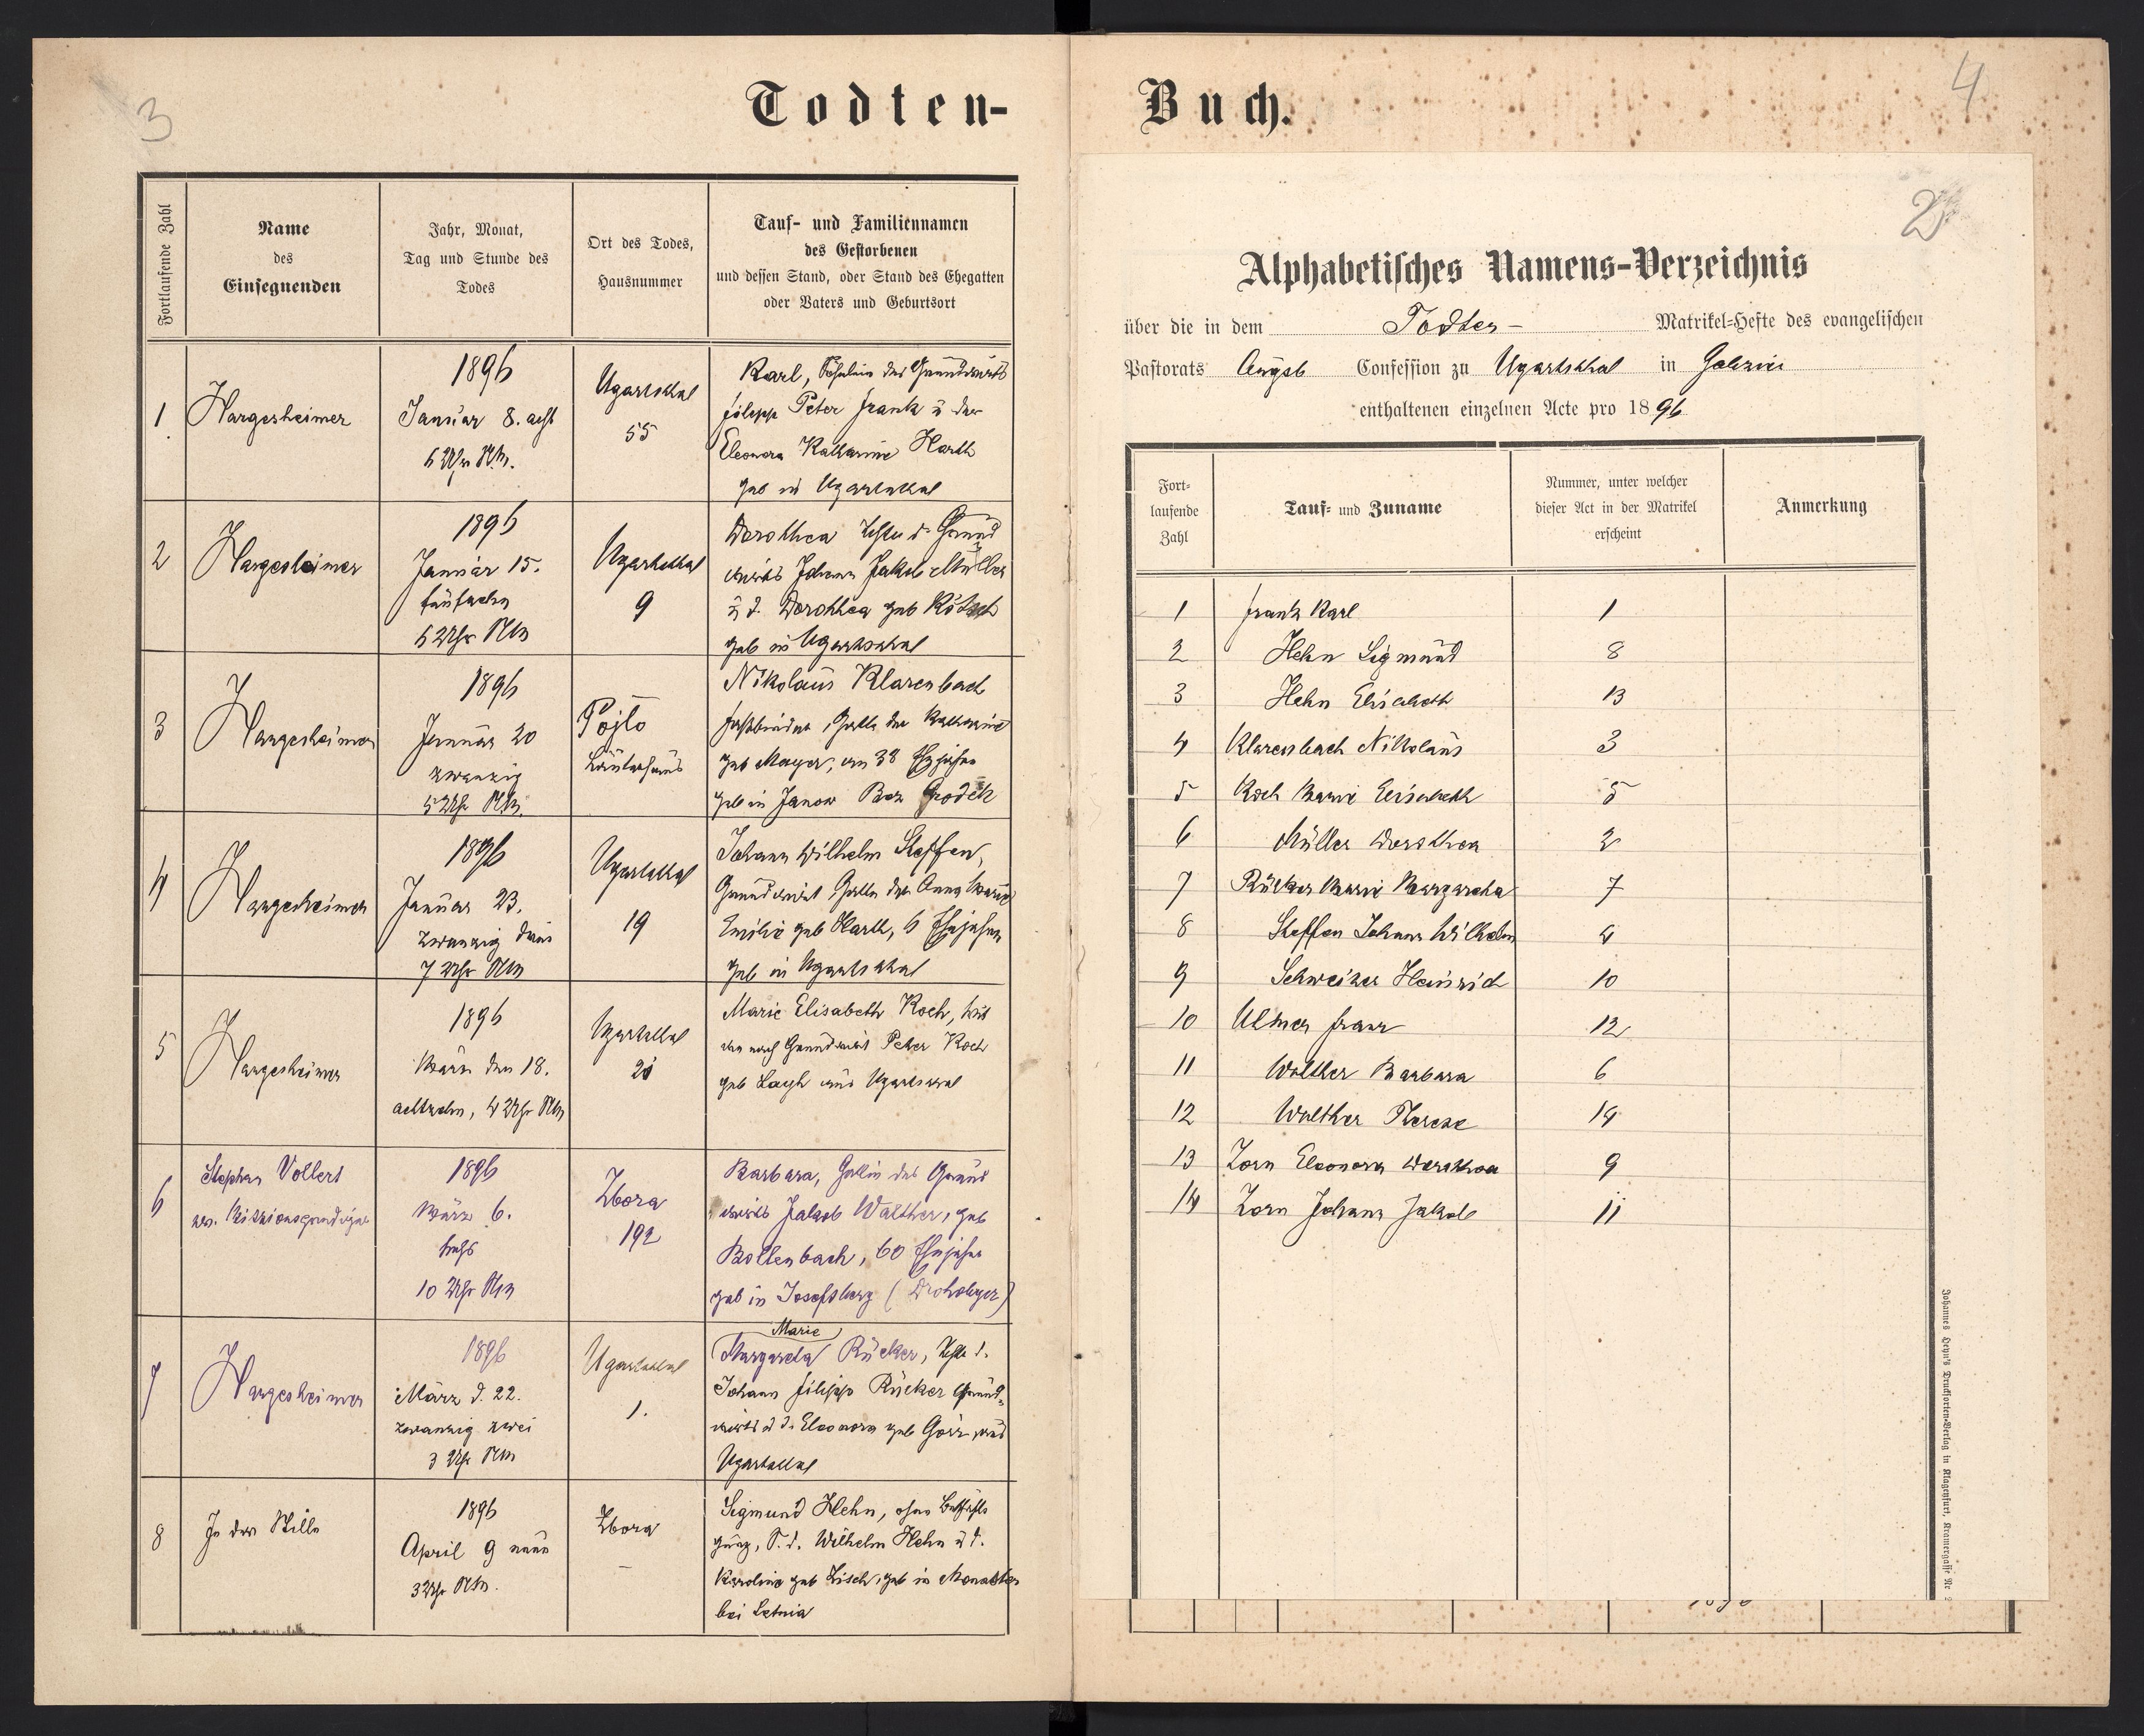 3
Todten-
Fortlaufende Zahl
Name
des
Einsegnenden
Jahr, Monat,
Tag und Stunde des
Todes
Ort des Todes,
Hausnummer
Tauf- und Familiennamen
des Gestorbenen
und dessen Stand, oder Stand des Ehegatten
oder Vaters und Geburtsort
1
Hargesheimer
1896
Januar 8. acht
6 Uhr Nm.
Ugartsthal
55
Karl, Söhnlein des Grundwirts
Filipp Peter Frank u der
Eleonora Katharine Harth
geb in Ugartsthal
2
Hargesheimer
1896
Januar 15.
fünfzehn
6 Uhr Nm
Ugartsthal
9
Dorothea Tochter d. Grund
wirts Johann Jakob Müller
u d. Dorothea geb Kötsch
geb in Ugartsthal
3
Hargesheimer
1896
Januar 20
zwanzig
5 Uhr Nm.
Pojlo
Nikolaus Klarenbach
Faßbinder, Gatte der Katharine
geb Mayer, 38 Ehejahre
geb in Janow Bez Grodek
4
Hargesheimer
1896
Januar 23.
zwanzig drei
7 Uhr Nm
Ugartsthal
19
Johann Wilhelm Steffen,
Grundwirt, Gatte der Anna Marie
Emilie geb Harth, 6 Ehejahre
geb in Ugartsthal
5
Hargesheimer
1896
März den 18.
achtzehn, 4 Uhr Nm
Ugartsthal
Marie Elisabeth Koch, Wit
we nach Grundwirt Peter Koch
geb aus Ugartsthal
6
Stephan Vollert
ev. Missionsprediger
1896
März 6.
sechs
10 Uhr Nm
Zbora
192
Barbara, Gattin des Grund
wirts Jakob Walther, geb
Bollenbach, 60 Ehejahre
geb in Josefsberg (Drohobycz)
7
Hargesheimer
1896
März d. 22.
zwanzig zwei
3 Uhr Nm
Ugartsthal
1.
Marie
Margareta Rücker, Tochter d.
Johann Filipp Rücker Grund-
wirts u d. Eleonora geb Görz aus
Ugartsthal
8
In der Stille
1896
April 9 neun
3 Uhr Nm.
Zbora
–
Sigmund Hehn, ohne
S. d. Wilhelm Hehn u d.
Karoline geb Lisch, geb in
bei Letnia
Buch.
4
2
Alphabetisches Namens-Verzeichnis
über die in dem Todten- Matrikel-Hefte des evangelischen
Pastorats Augsb Confession zu Ugartsthal in Galizien
enthaltenen einzelnen Acte pro 1896
Fort-
laufende
Zahl
Tauf- und Zuname
Nummer, unter welcher
dieser Act in der Matrikel
erscheint
Anmerkung
1 Frank Karl 1
2 Hehn Sigmund 8
3 Hehn Elisabeth 13
4 Klarenbach Nikolaus 3
5 Koch Marie Elisabeth 5
6 Müller Dorothea 2
7 Rücker Marie Margaretha 7
8 Steffen Johann Wilhelm 4
9 Schweizer Heinrich 10
10 Ulmer Franz 12
11 Walther Barbara 6
12 Walther Therese 14
13 Zorn Eleonora Dorothea 9
14 Zorn Johann Jakob 11